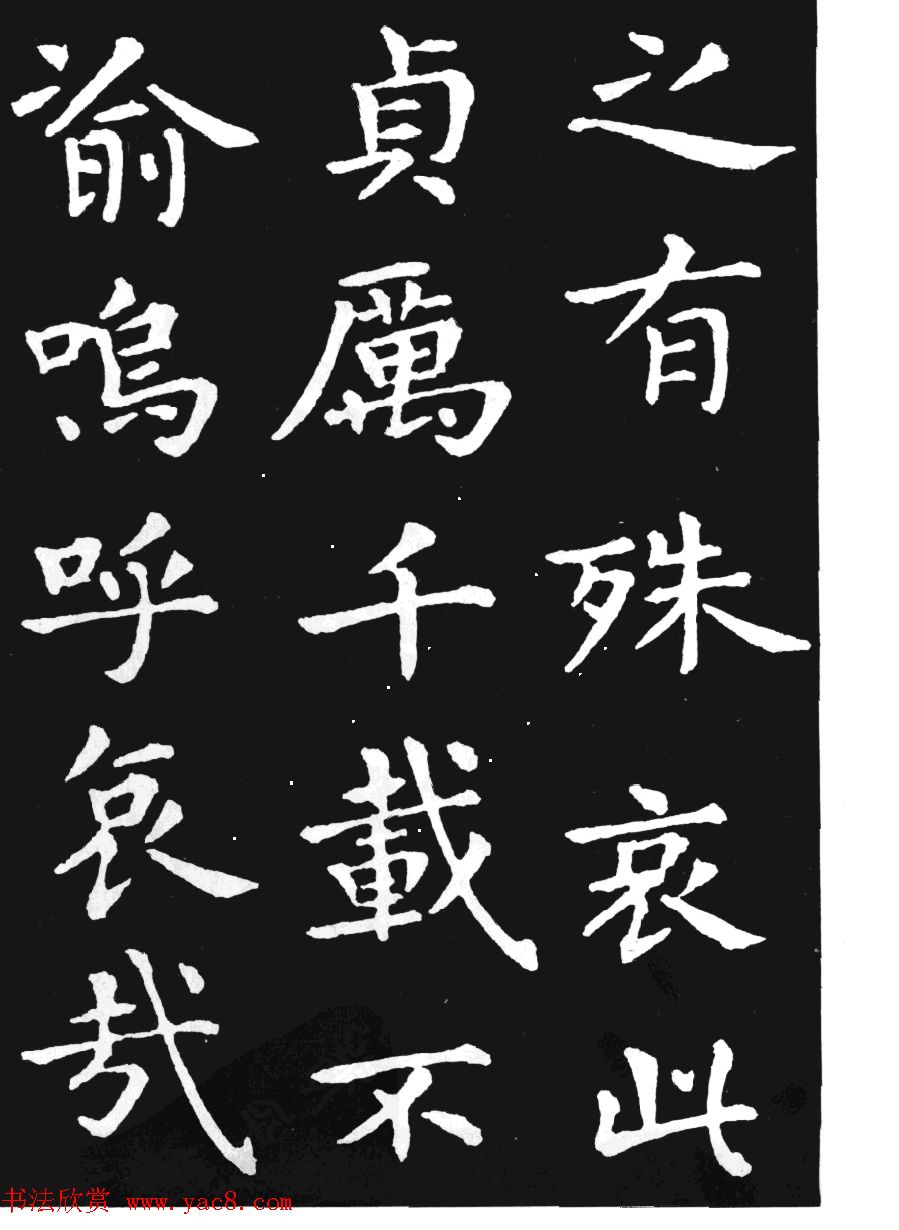 之有殊哀此
貞厲千載不
渝嗚呼哀哉
书法欣赏 www.yac8.com